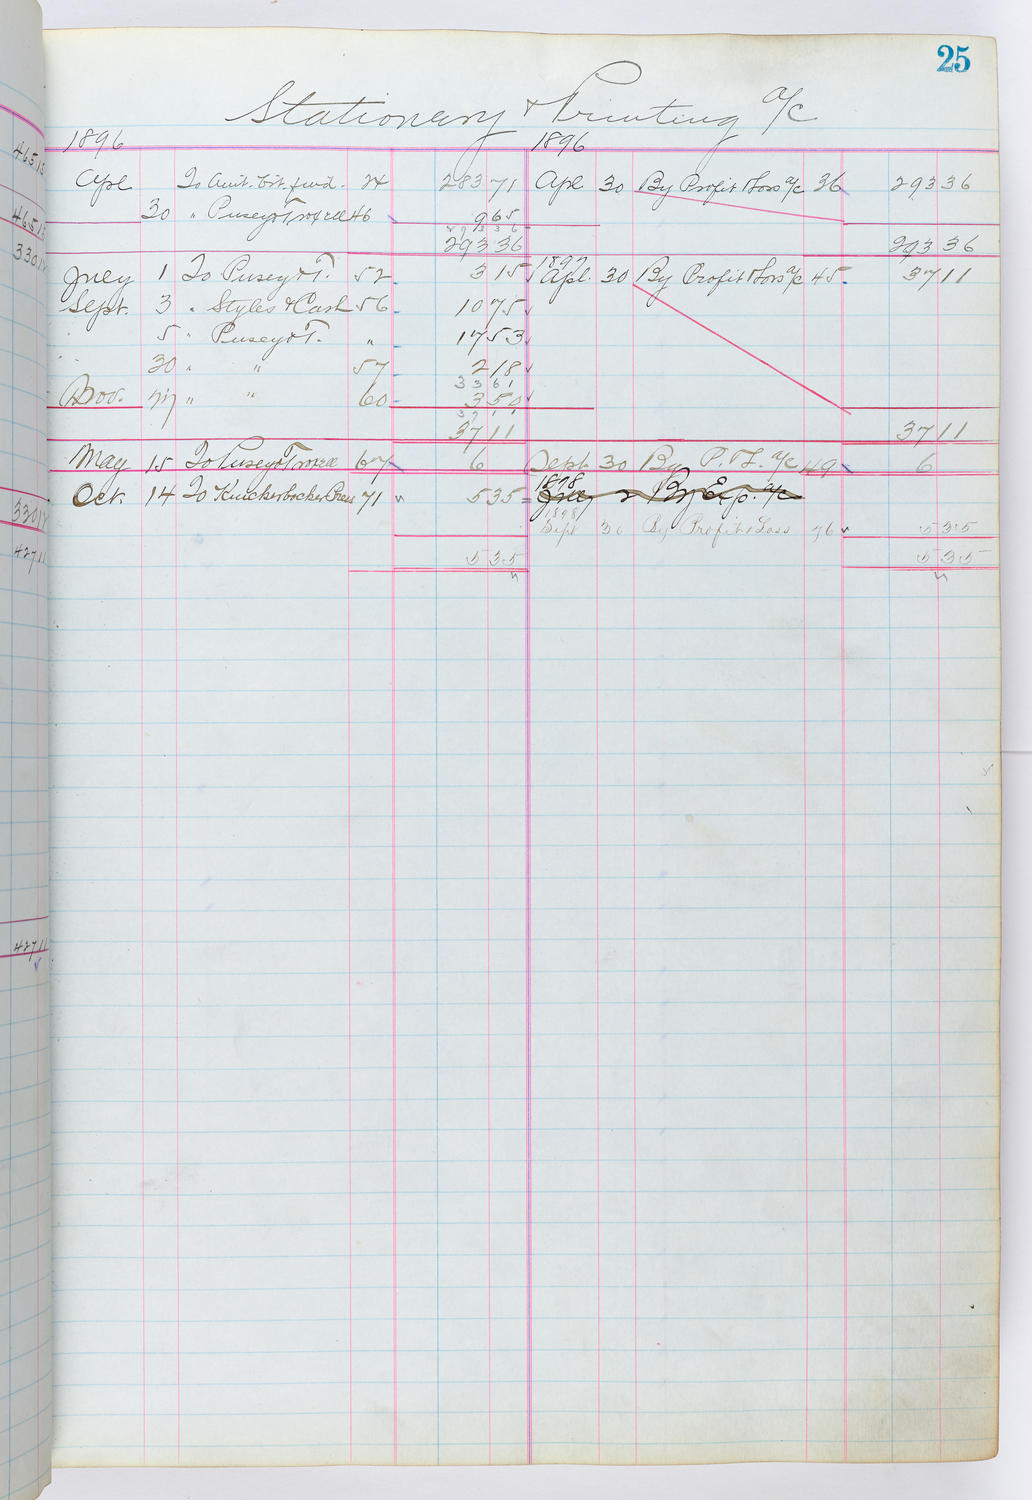 25
Stationery & Printing a/c
1896 1896
465.15
Apl To Amt. brt. fwd. 24 283 71 Apl 30 By Profit & Loss a/c 36 293 36
30 " Pusey & Troxell 46 9 65
465.15
293 36
293 36 293 36
330.12
1897
July 1 To Pusey & T. 52 3 15 Apl. 30 By Profit & Loss a/c 45 37 11
Sept. 3 " Styles & Cash 56 10 75
" 5 " Pusey & T. " 17 53
" 30 " " 57 2 18
33 61
Nov. 27 " " 60 3 50
37 11
37 11 37 11
May 15 To Pusey & Troxell 67 6 Sept. 30 By P. & L. a/c 49 6
1898
Oct. 14 To Knickerbocker Press 71 5 35 July 2 By Exp. a/c
1898
33012
Sept 30 By Profit & Loss 76 5 35
427 11
5 35 5 35
427 11